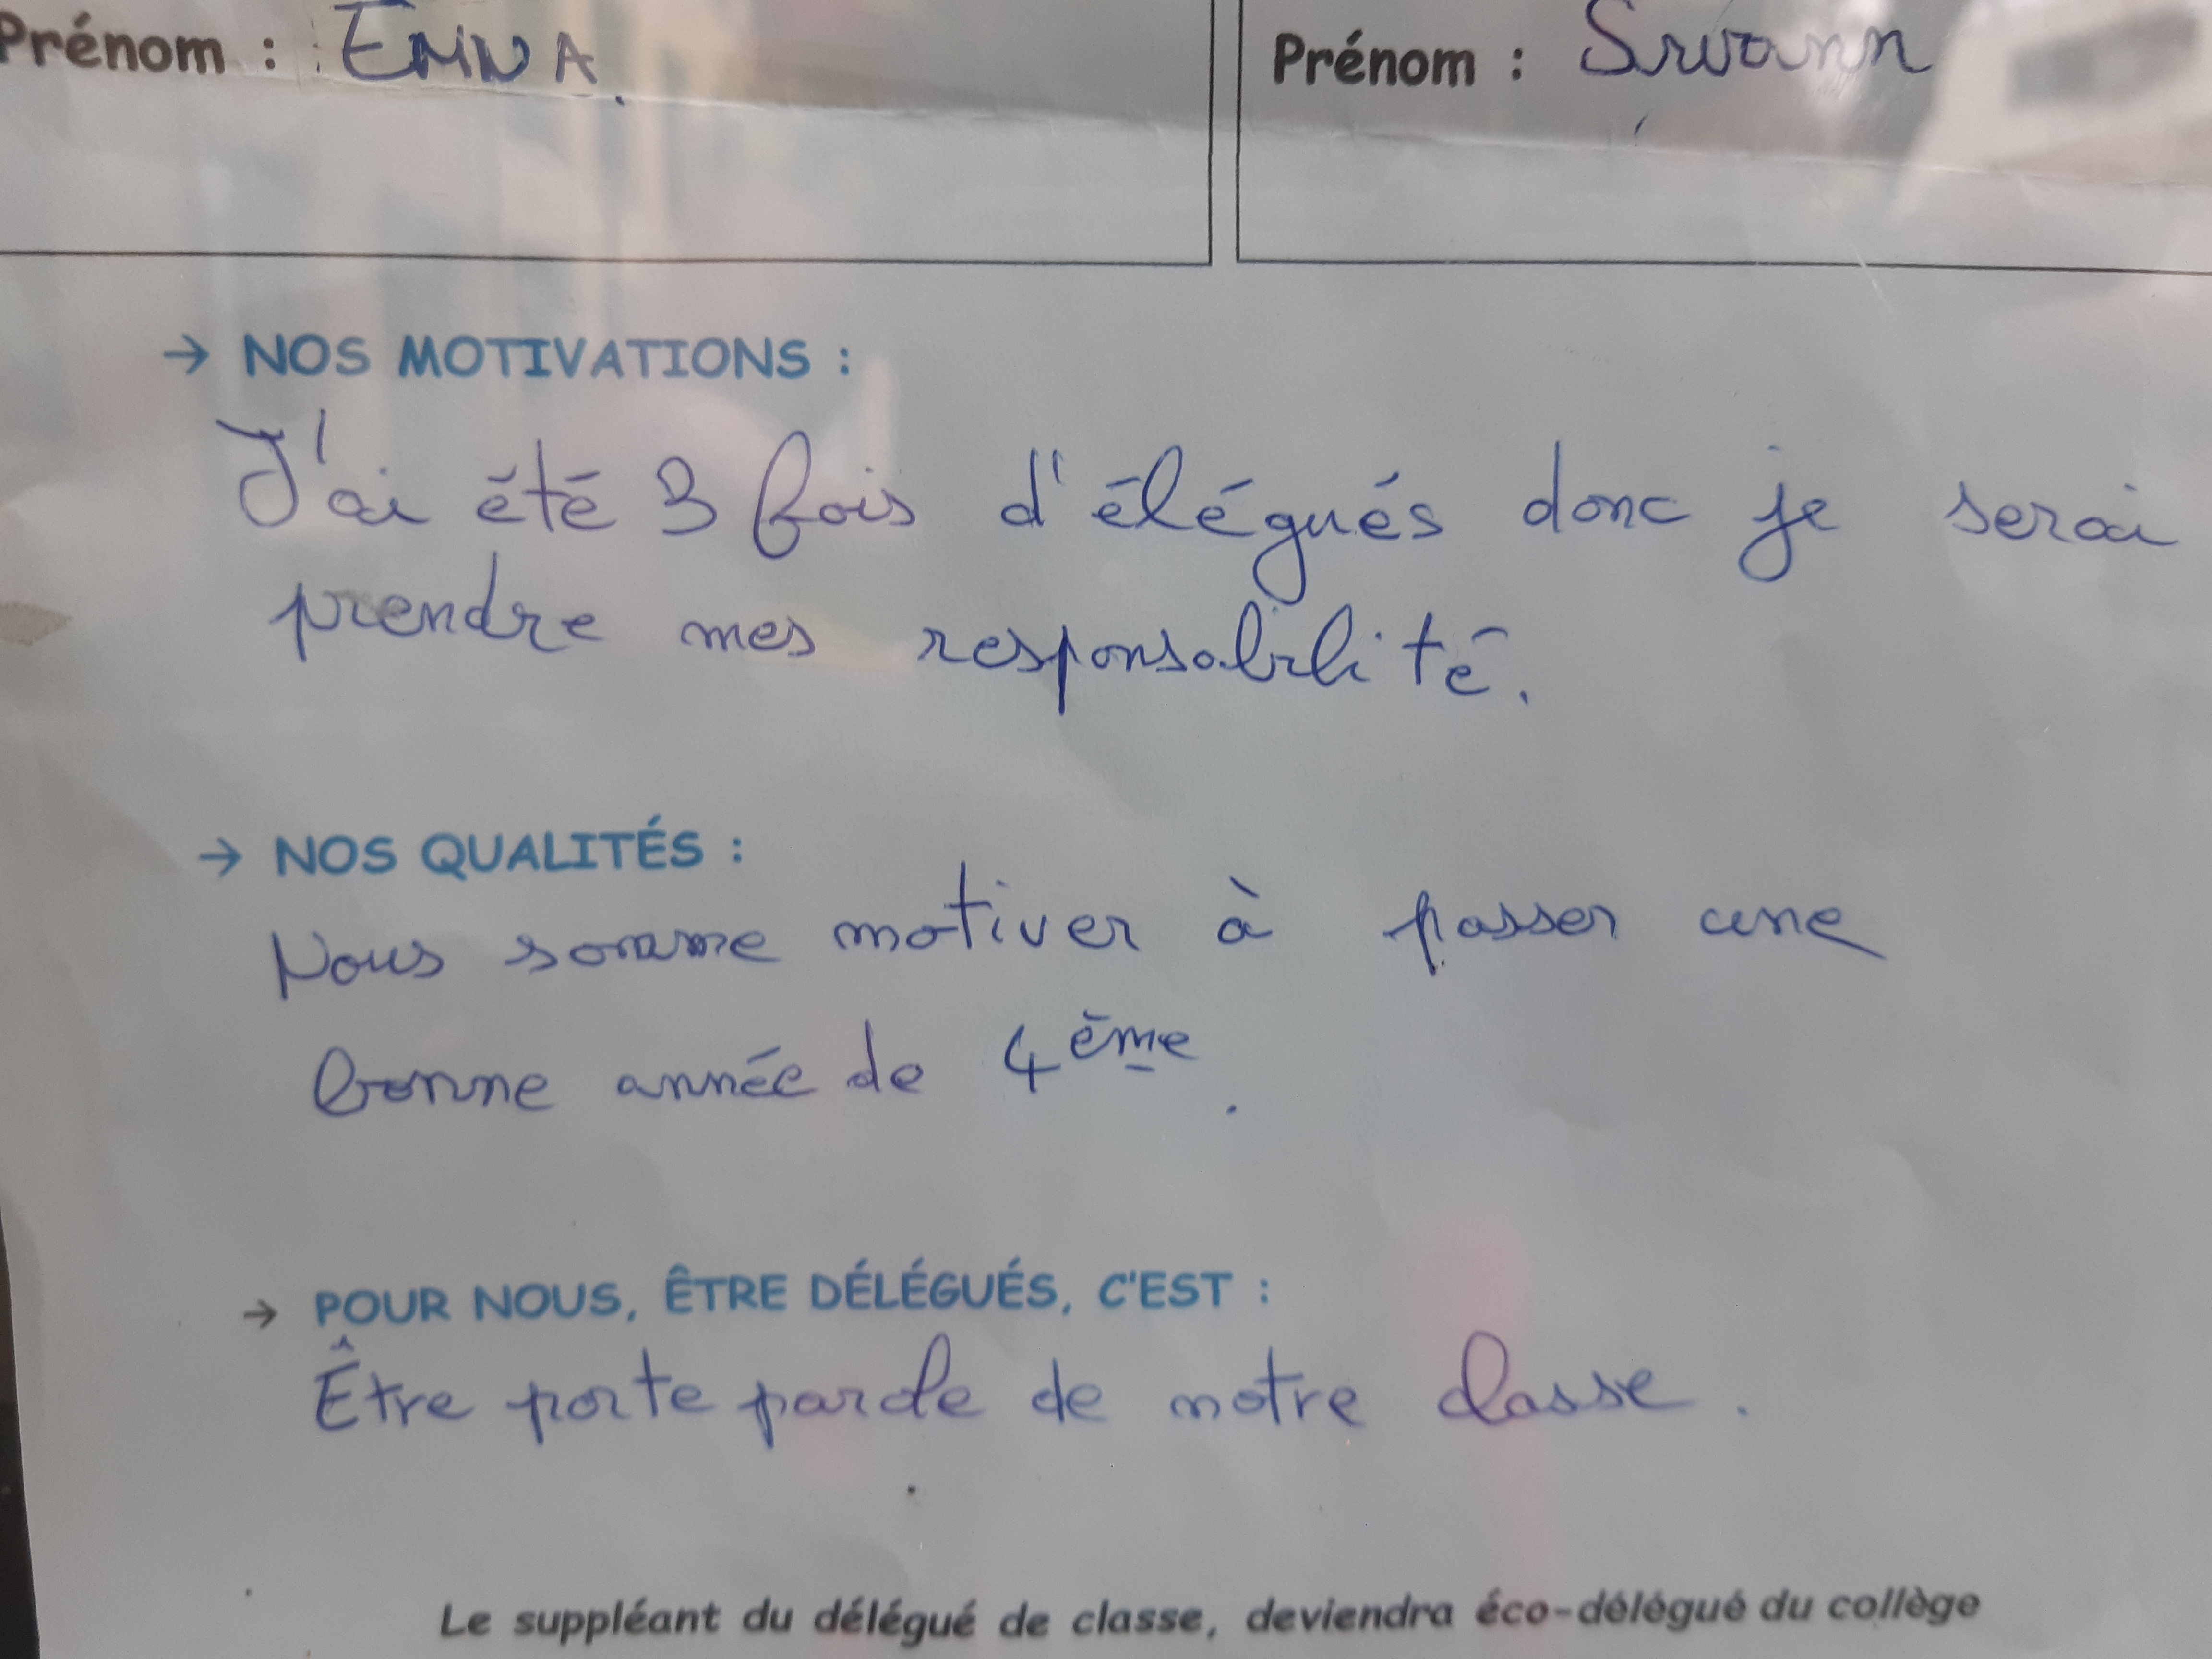 Prénom : EMNA.
Prénom : Swann
→ NOS MOTIVATIONS :
J'ai été 3 fois d'élégués donc je serai
prendre mes responsabilité.
→ NOS QUALITÉS :
Nous somme motiver à passer une
bonne année de 4ème.
→ POUR NOUS, ÊTRE DÉLÉGUÉS, C'EST :
Être porte parole de notre classe.
Le suppléant du délégué de classe, deviendra éco-délégué du collège